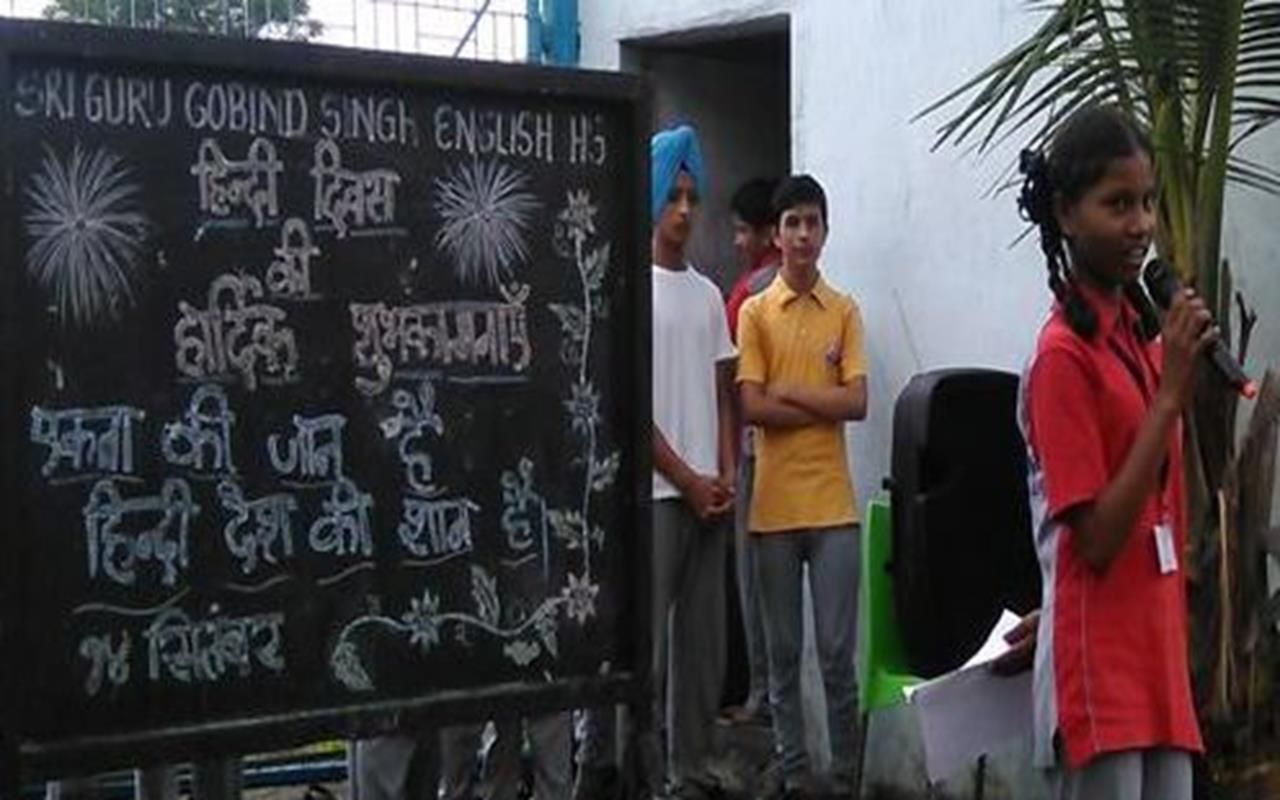 SRI GURU GOBIND SINGH ENGLISH HS
हिन्दी दिवस
की
हार्दिक शुभकामनाएँ
एकता की जान है
हिन्दी देश की शान है।
१४ सितंबर